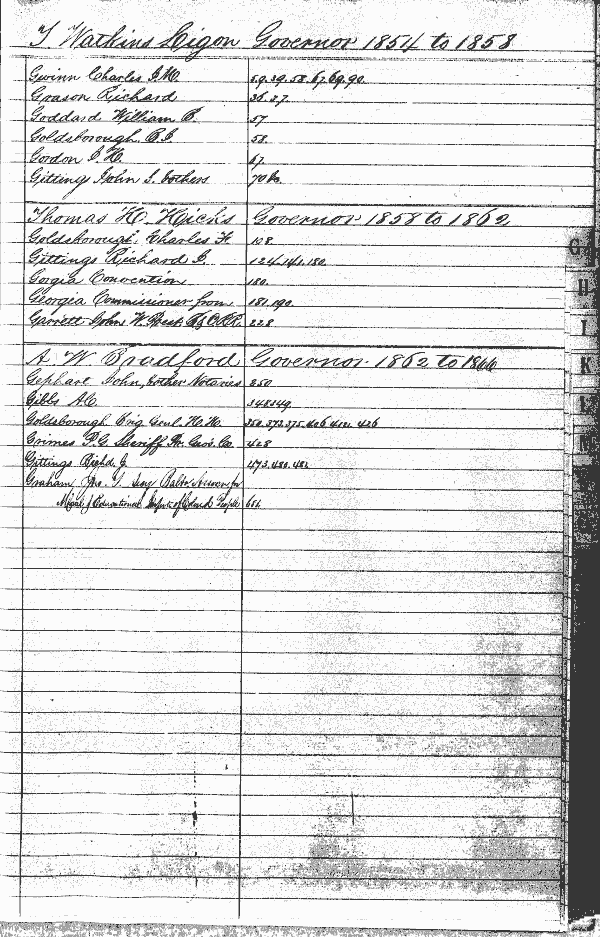 T Watkins Ligon Governor 1854 to 1858
Gwinn Charles J.M. 59.67.69.90.
Grason Richard 36.37.
Goddard William P. 57
Goldsborough 58.
Gordon J. H. 67.
Gittings John S. & others 70
Thomas H. Hicks Governor 1858 to 1862
Goldsborough, Charles F. 108.
Gittings Richard J. 124.141.180.
Gorgia Convention 180.
Georgia Commissioner from 181.190.
Garrett John W. Prest. B&O.R.R. 228
A W Bradford Governor 1862 to 1866
Gephart John, & other Notaries 250
Gibbs
Goldsborough Brig Genl. H.H.
Grimes P.G. Sheriff Co. 428
Gittings Richd. J. 473.480.481
Graham Jno. T. Secy Balto. Assoc. for
Moral & Educational Colored People
G
H
I
K
L
M